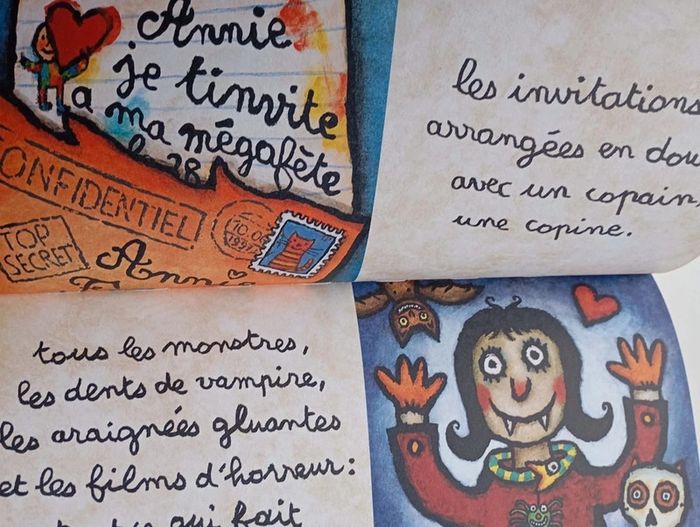 Annie
je tinvite
a ma mégafête
le 28
CONFIDENTIEL
TOP
SECRET
Annie
les invitations
arrangées en
avec un copain,
une copine.
tous les monstres,
les dents de vampire,
les araignées gluantes
et les films d'horreur:
qui fait